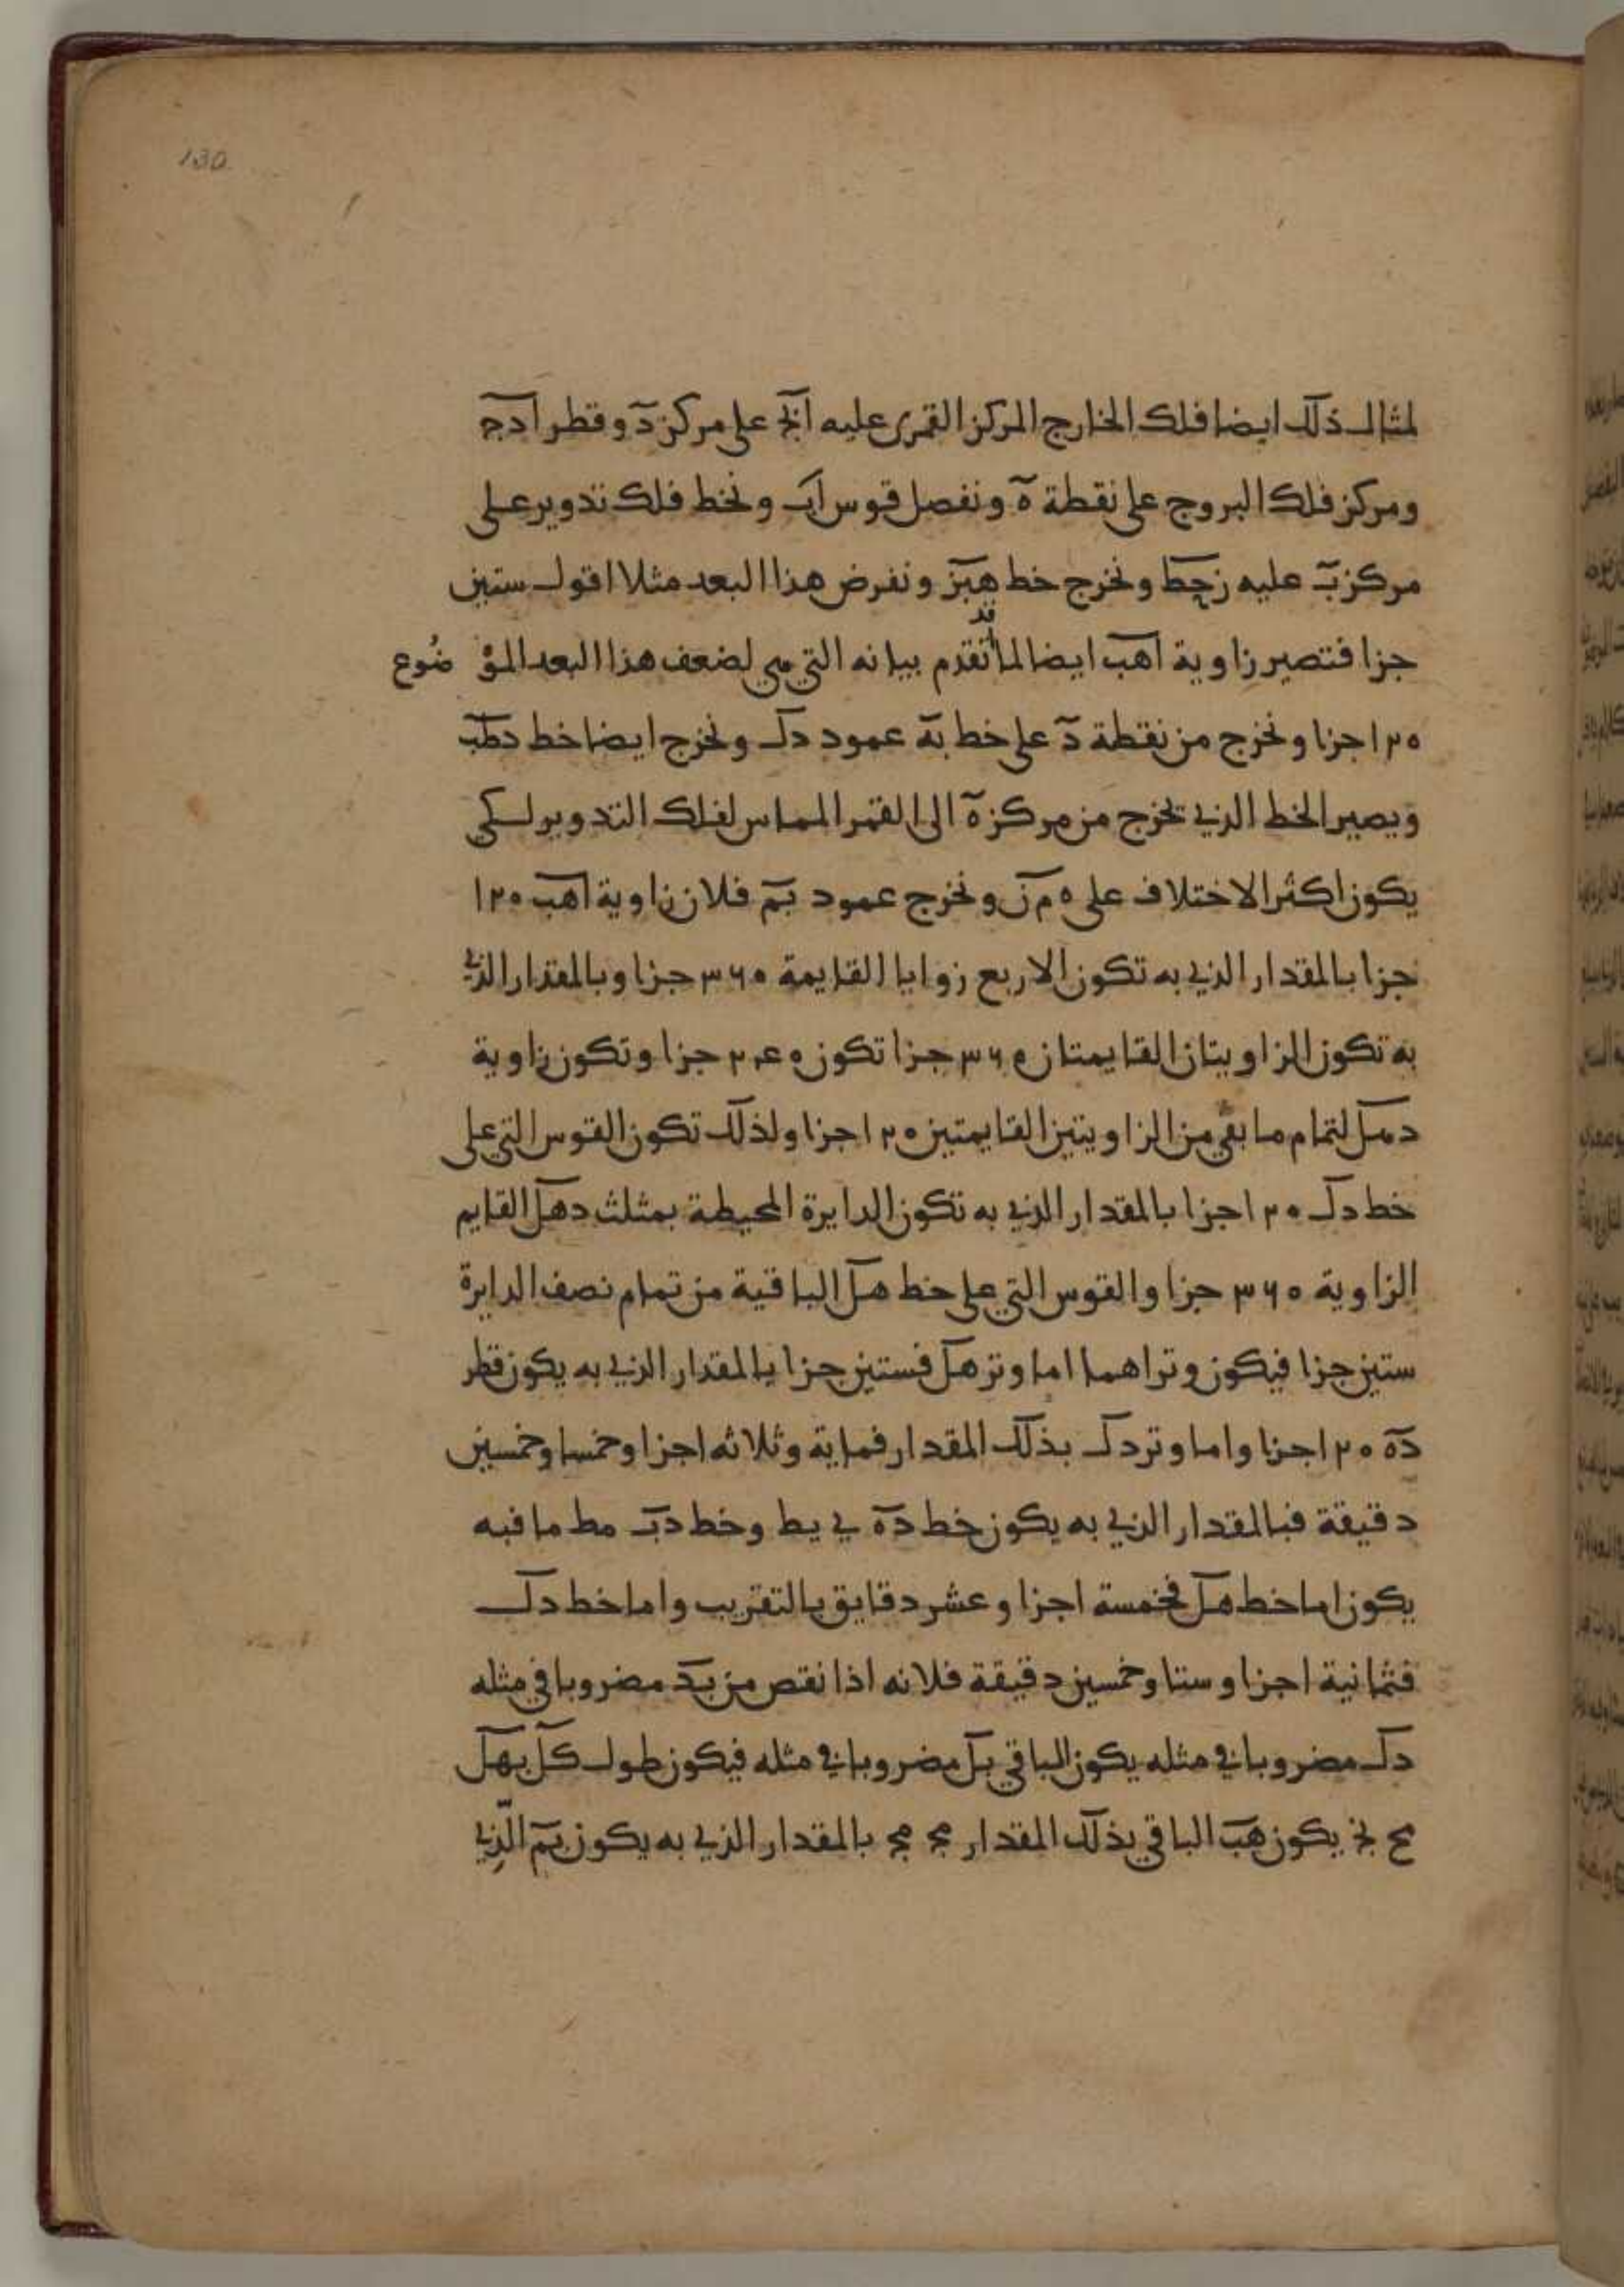 130
لمثال ذلك ايضا فلك الخارج المركز القمرى عليه ابج على مركز د وقطر ادج
ومركز فلك البروج على نقطة ه ونفصل قوس اب ونخط فلك تدوير على
مركز ب عليه زحط ونخرج خط هبز ونفرض هذا البعد مثلا اقول ستين
جزا فتصير زاوية اهب ايضا لما قد تقدم بيانه التي هي لضعف هذا البعد المؤ ضُوع
١٢٠ جزا ونخرج من نقطة د على خط به عمود دك ونخرج ايضا خط دطب
ويصير الخط الذي يخرج من مركز ه الى القمر المماس لفلك التدوير لكي
يكون اكثر الاختلاف على ه م ن ونخرج عمود بم فلان زاوية اهب ١٢٠
جزا بالمقدار الذي به تكون الاربع زوايا القايمة ٣٦٠ جزا وبالمقدار الذي
به تكون الزاويتان القايمتان ٣٦٠ جزا تكون ٢٤٠ جزا وتكون زاوية
دهل لتمام ما بقي من الزاويتين القايمتين ١٢٠ جزا ولذلك تكون القوس التي على
خط دك ١٢٠ جزا بالمقدار الذي به تكون الدايرة المحيطة بمثلث دهل القايم
الزاوية ٣٦٠ جزا والقوس التي على خط هل الباقية من تمام نصف الدايرة
ستين جزا فيكون وتراهما اما وتر هل فستين جزا بالمقدار الذي به يكون قطر
ده ١٢٠ جزا واما وتر دك بذلك المقدار فماية وثلاثه اجزا وخمسا وخمسين
دقيقة فبالمقدار الذي به يكون خط ده ي يط وخط دب مط ما فبه
يكون اما خط هل فخمسة اجزا وعشر دقايق بالتقريب واما خط دك
فثمانية اجزا وستا وخمسين دقيقة فلانه اذا نقص من بد مضروبا في مثله
دك مضروبا في مثله يكون الباقي بل مضروبا في مثله فيكون طول كل بهل
مح نج يكون هب الباقي بذلك المقدار مج مج بالمقدار الذي به يكون بم الّذِي